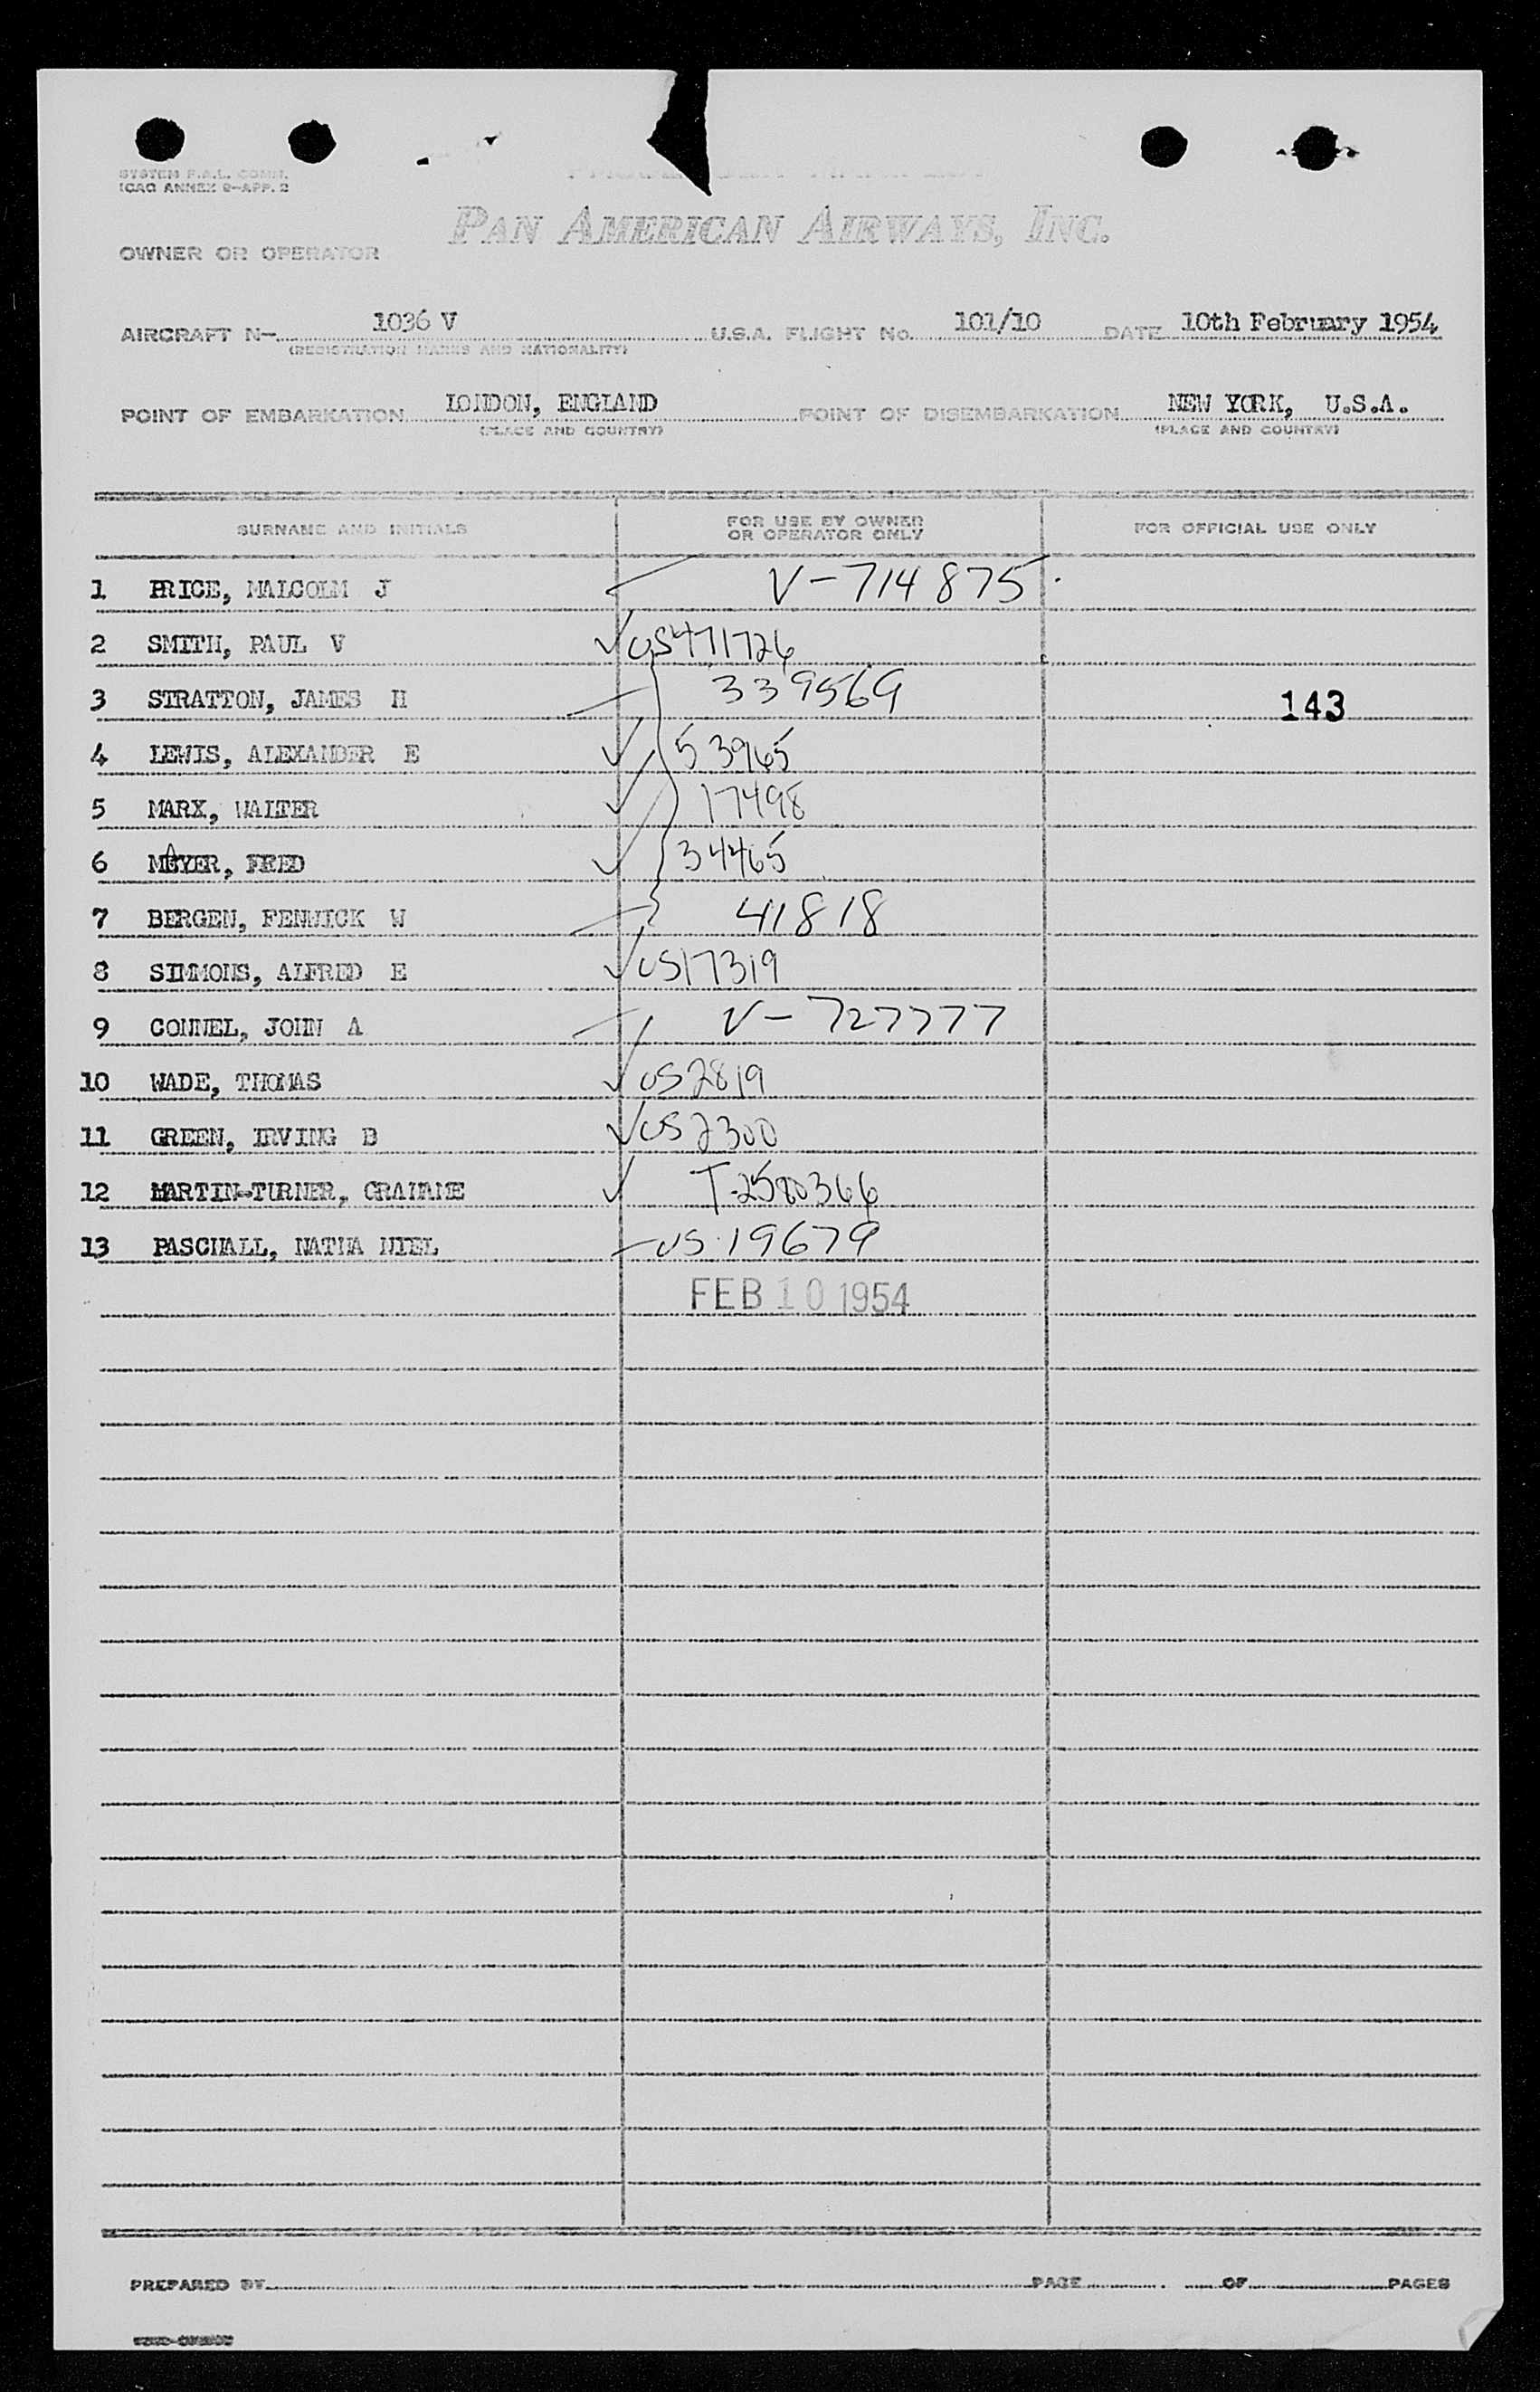 SYSTEM P.A.L. COMM.
ICAO ANNEX 9-APP. 2
PAN AMERICAN AIRWAYS, INC.
OWNER OR OPERATOR
AIRCRAFT N- 1036 V U.S.A. FLIGHT No. 101/10 DATE 10th February 1954
(REGISTRATION MARKS AND NATIONALITY)
POINT OF EMBARKATION LONDON, ENGLAND POINT OF DISEMBARKATION NEW YORK, U.S.A.
(PLACE AND COUNTRY) (PLACE AND COUNTRY)
SURNAME AND INITIALS FOR USE BY OWNER OR OPERATOR ONLY FOR OFFICIAL USE ONLY
1 PRICE, MALCOLM J V-714875
2 SMITH, PAUL V ✓ US471726
3 STRATTON, JAMES H 339569 143
4 LEWIS, ALEXANDER E ✓ 53965
5 MARX, WALTER ✓ 17498
6 MAYER, FRED ✓ 34465
7 BERGEN, FENWICK W 41818
8 SIMMONS, ALFRED E ✓ US17319
9 CONNEL, JOHN A V-727777
10 WADE, THOMAS ✓ US2819
11 GREEN, IRVING B ✓ US2300
12 MARTIN-TURNER, GRAHAME ✓ T-2580366
13 PASCHALL, NATHA NIEL US 19679
FEB 10 1954
PREPARED BY PAGE OF PAGES